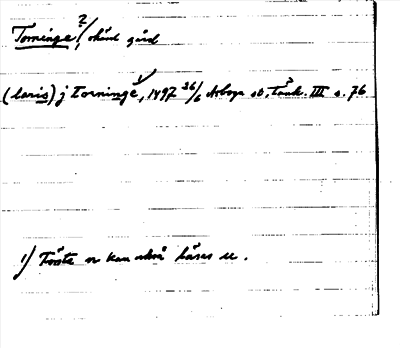 Torninge,? okänd gård
(laris) j torninge¹⁾, 1497 26/6 Arboga stb, tänk. III s. 76
1) Första n kan också läsas u.